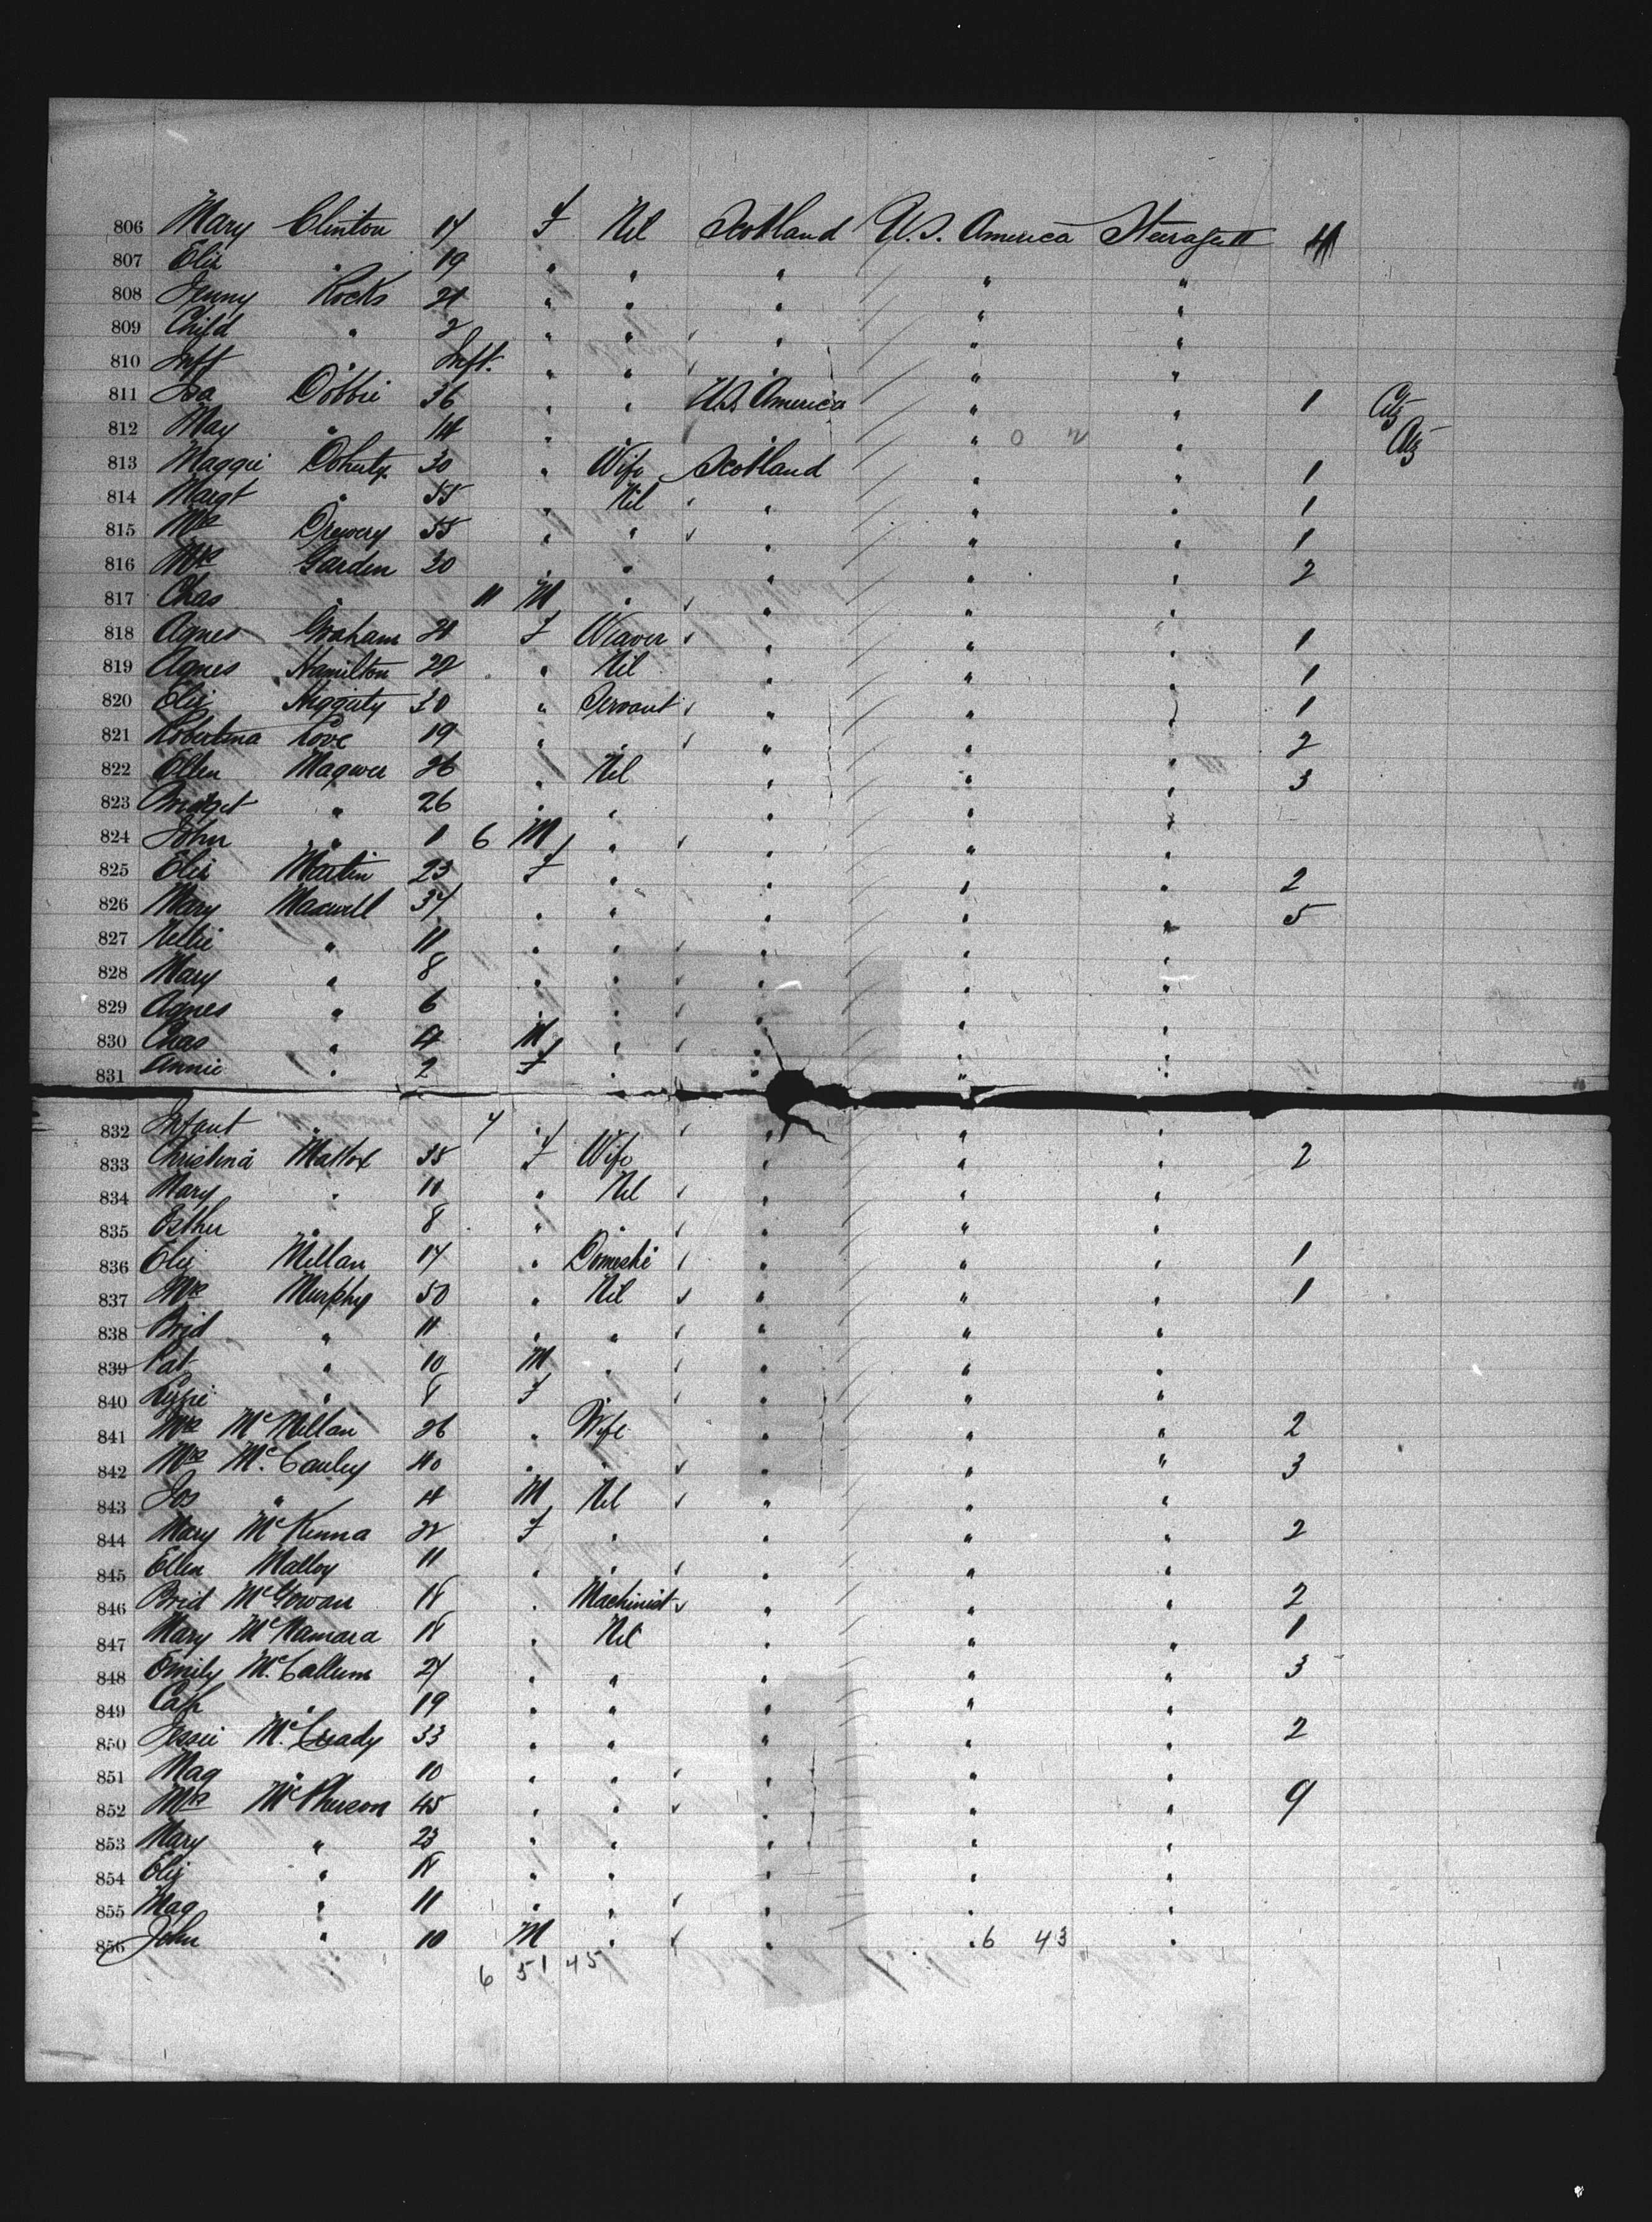 806 Mary Clinton 17 F Nil Scotland U.S. America Steerage
807 Eliz " 19 " " " " "
808 Jenny Rocks 21 " " " " "
809 Child " 2 " " " " "
810 Inft " Inft. " " " " "
811 Isa Dobbie 36 " " U.S. America " " 1 Citz
812 May " 14 " " " " " Citz
813 Maggie Doherty 30 " Wife Scotland " " 1
814 Margt " 55 " Nil " " " 1
815 Mrs Drewery 55 " " " " " 1
816 Mrs Garden 30 " " " " " 2
817 Chas " 11 M " " " "
818 Agnes Graham 21 F Weaver " " " 1
819 Agnes Hamilton 22 " Nil " " " 1
820 Eliz 30 " Servant " " " 1
821 Robertina Love 19 " " " " " 2
822 Ellen 26 " Nil " " " 3
823 " 26 " " " " "
824 John " 1 6 M " " " "
825 Eliz Martin 23 F " " " " 2
826 Mary Maxwell 37 " " " " " 5
827 Nellie " 11 " " " " "
828 Mary " 8 " " " " "
829 Agnes " 6 " " " " "
830 Chas " 4 M " " " "
831 Annie " 2 F " " " "
832 Infant " 7 " " " " "
833 Christina Mattox 35 F Wife " " " 2
834 Mary " 11 " Nil " " "
835 Esther " 8 " " " " "
836 Eliz Millan 17 " Domestic " " " 1
837 Mrs Murphy 50 " Nil " " " 1
838 Brid " 11 " " " " "
839 Pat " 10 M " " " "
840 Lizzie " 8 F " " " "
841 Mrs McMillan 26 " Wife " " " 2
842 Mrs McCauley 40 " " " " " 3
843 Jos " 14 M Nil " " "
844 Mary McKenna 22 F " " " " 2
845 Ellen Malloy 11 " " " " "
846 Brid McGowan 18 " Machinist " " " 2
847 Mary McNamara 18 " Nil " " " 1
848 Emily McCallum 27 " " " " " 3
849 Cath " 19 " " " " "
850 Jessie McCready 33 " " " " " 2
851 Mag " 10 " " " " "
852 Mrs McPherson 45 " " " " " 9
853 Mary " 23 " " " " "
854 Eliz " 18 " " " " "
855 Mag " 11 " " " " "
856 John " 10 M " " " 6 43 "
6 51 45